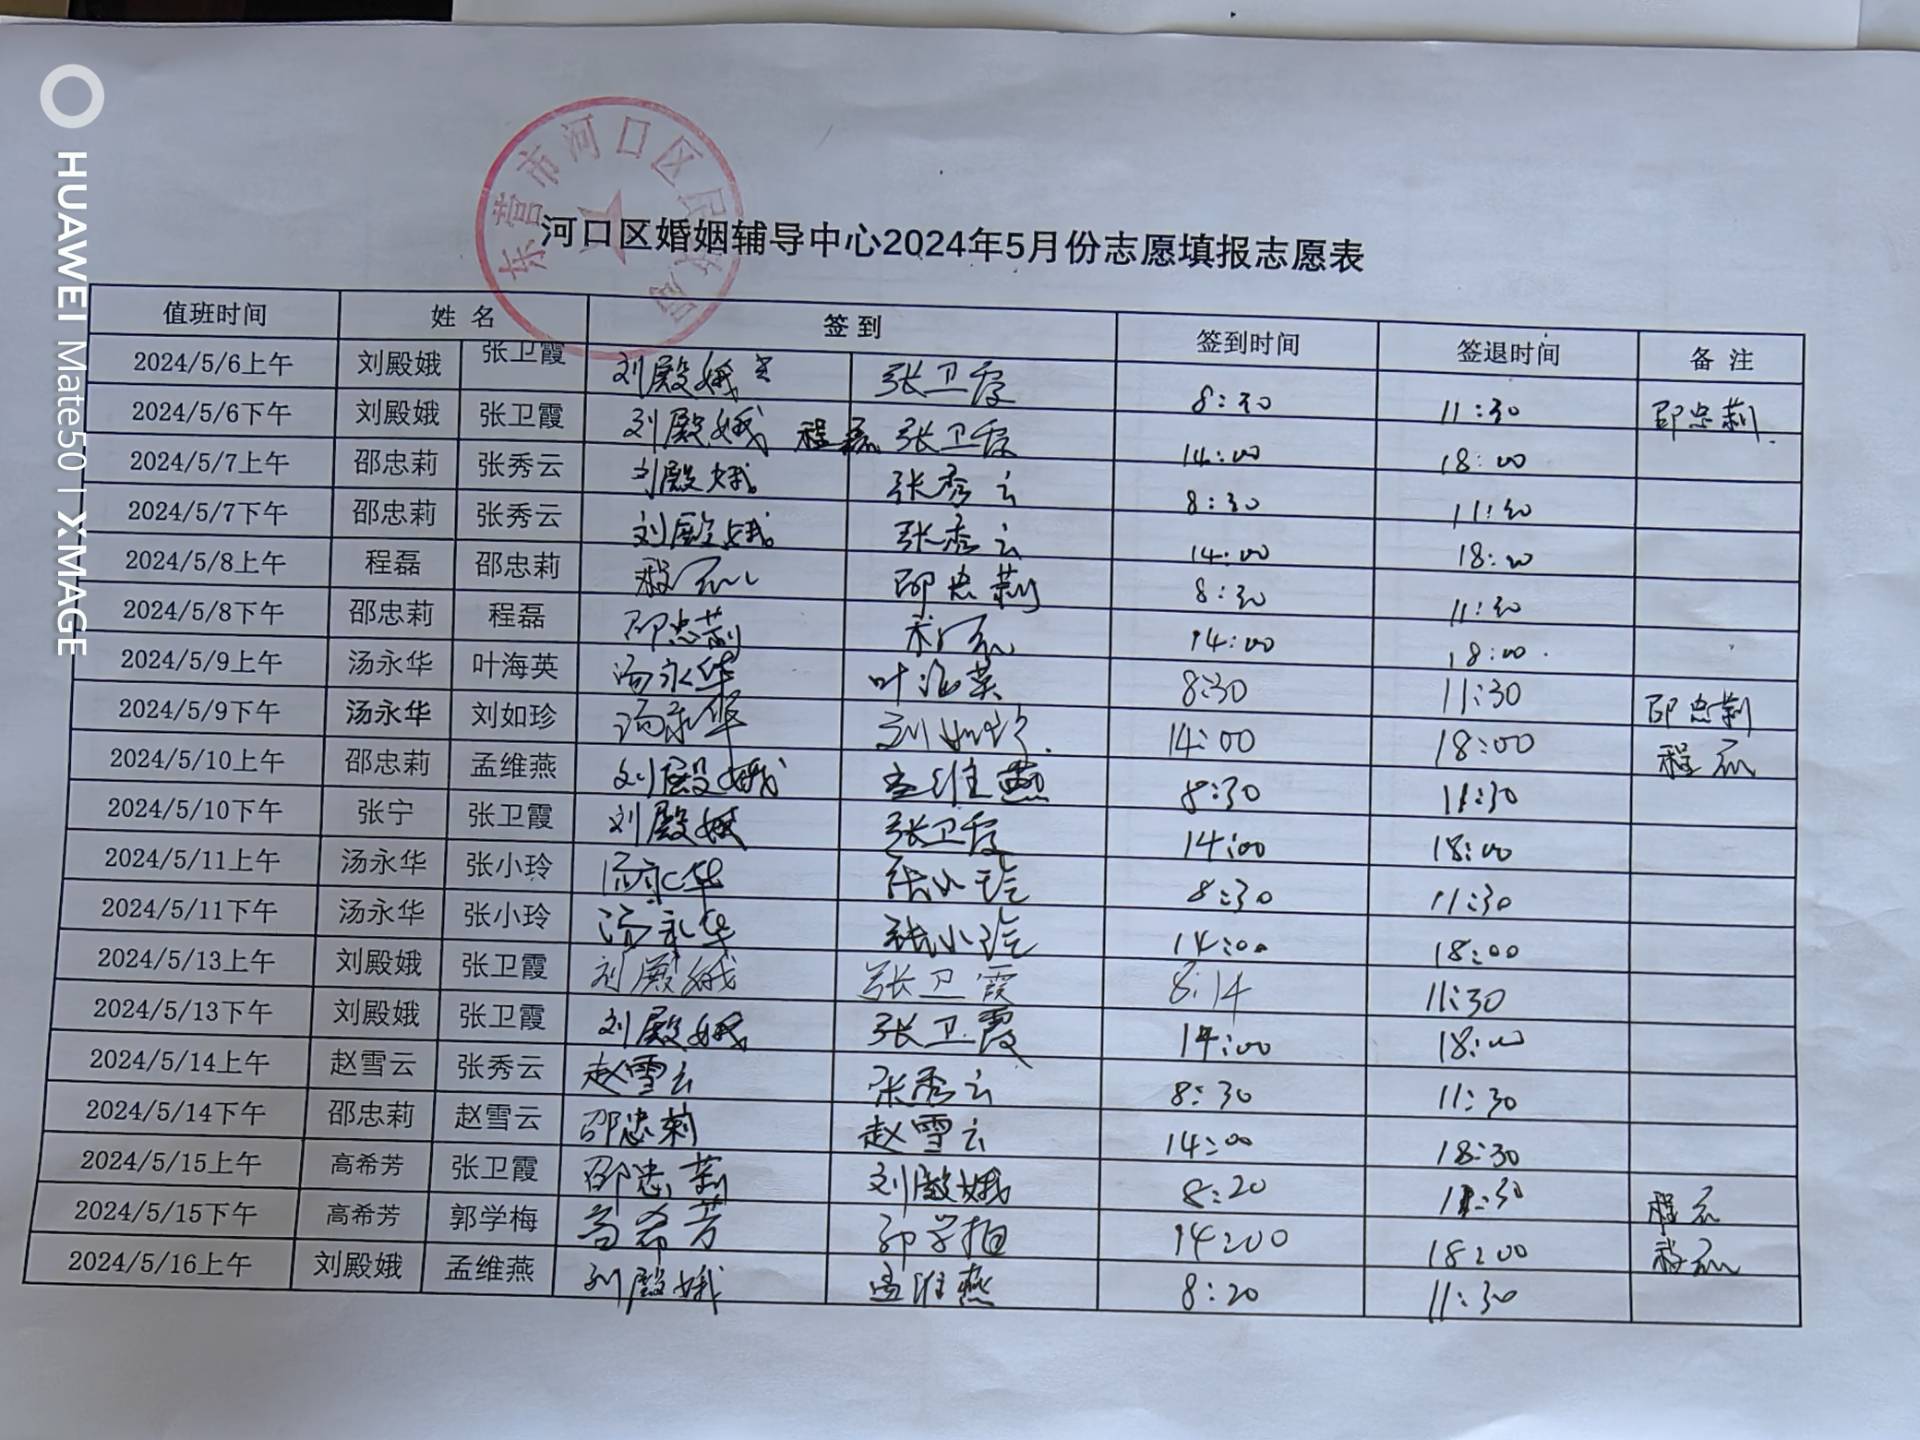 HUAWEI Mate50 | XMAGE
东营市河口区民政局
河口区婚姻辅导中心2024年5月份志愿填报志愿表
值班时间 姓 名 签 到 签到时间 签退时间 备 注
2024/5/6上午 刘殿娥 张卫霞 刘殿娥 张卫霞 8:30 11:30 邵忠莉
2024/5/6下午 刘殿娥 张卫霞 刘殿娥 程磊 张卫霞 14:00 18:00
2024/5/7上午 邵忠莉 张秀云 刘殿娥 张秀云 8:30 11:30
2024/5/7下午 邵忠莉 张秀云 刘殿娥 张秀云 14:00 18:00
2024/5/8上午 程磊 邵忠莉 程磊 邵忠莉 8:30 11:30
2024/5/8下午 邵忠莉 程磊 邵忠莉 程磊 14:00 18:00
2024/5/9上午 汤永华 叶海英 汤永华 叶海英 8:30 11:30 邵忠莉
2024/5/9下午 汤永华 刘如珍 汤永华 刘如珍 14:00 18:00 程磊
2024/5/10上午 邵忠莉 孟维燕 刘殿娥 孟维燕 8:30 11:30
2024/5/10下午 张宁 张卫霞 刘殿娥 张卫霞 14:00 18:00
2024/5/11上午 汤永华 张小玲 汤永华 张小玲 8:30 11:30
2024/5/11下午 汤永华 张小玲 汤永华 张小玲 14:00 18:00
2024/5/13上午 刘殿娥 张卫霞 刘殿娥 张卫霞 8:14 11:30
2024/5/13下午 刘殿娥 张卫霞 刘殿娥 张卫霞 14:00 18:00
2024/5/14上午 赵雪云 张秀云 赵雪云 张秀云 8:30 11:30
2024/5/14下午 邵忠莉 赵雪云 邵忠莉 赵雪云 14:00 18:30
2024/5/15上午 高希芳 张卫霞 邵忠莉 刘殿娥 8:20 11:30 程磊
2024/5/15下午 高希芳 郭学梅 高希芳 郭学梅 14:00 18:00 程磊
2024/5/16上午 刘殿娥 孟维燕 刘殿娥 孟维燕 8:20 11:30